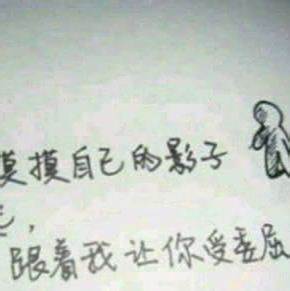 摸摸自己的影子
，
跟着我让你受委屈